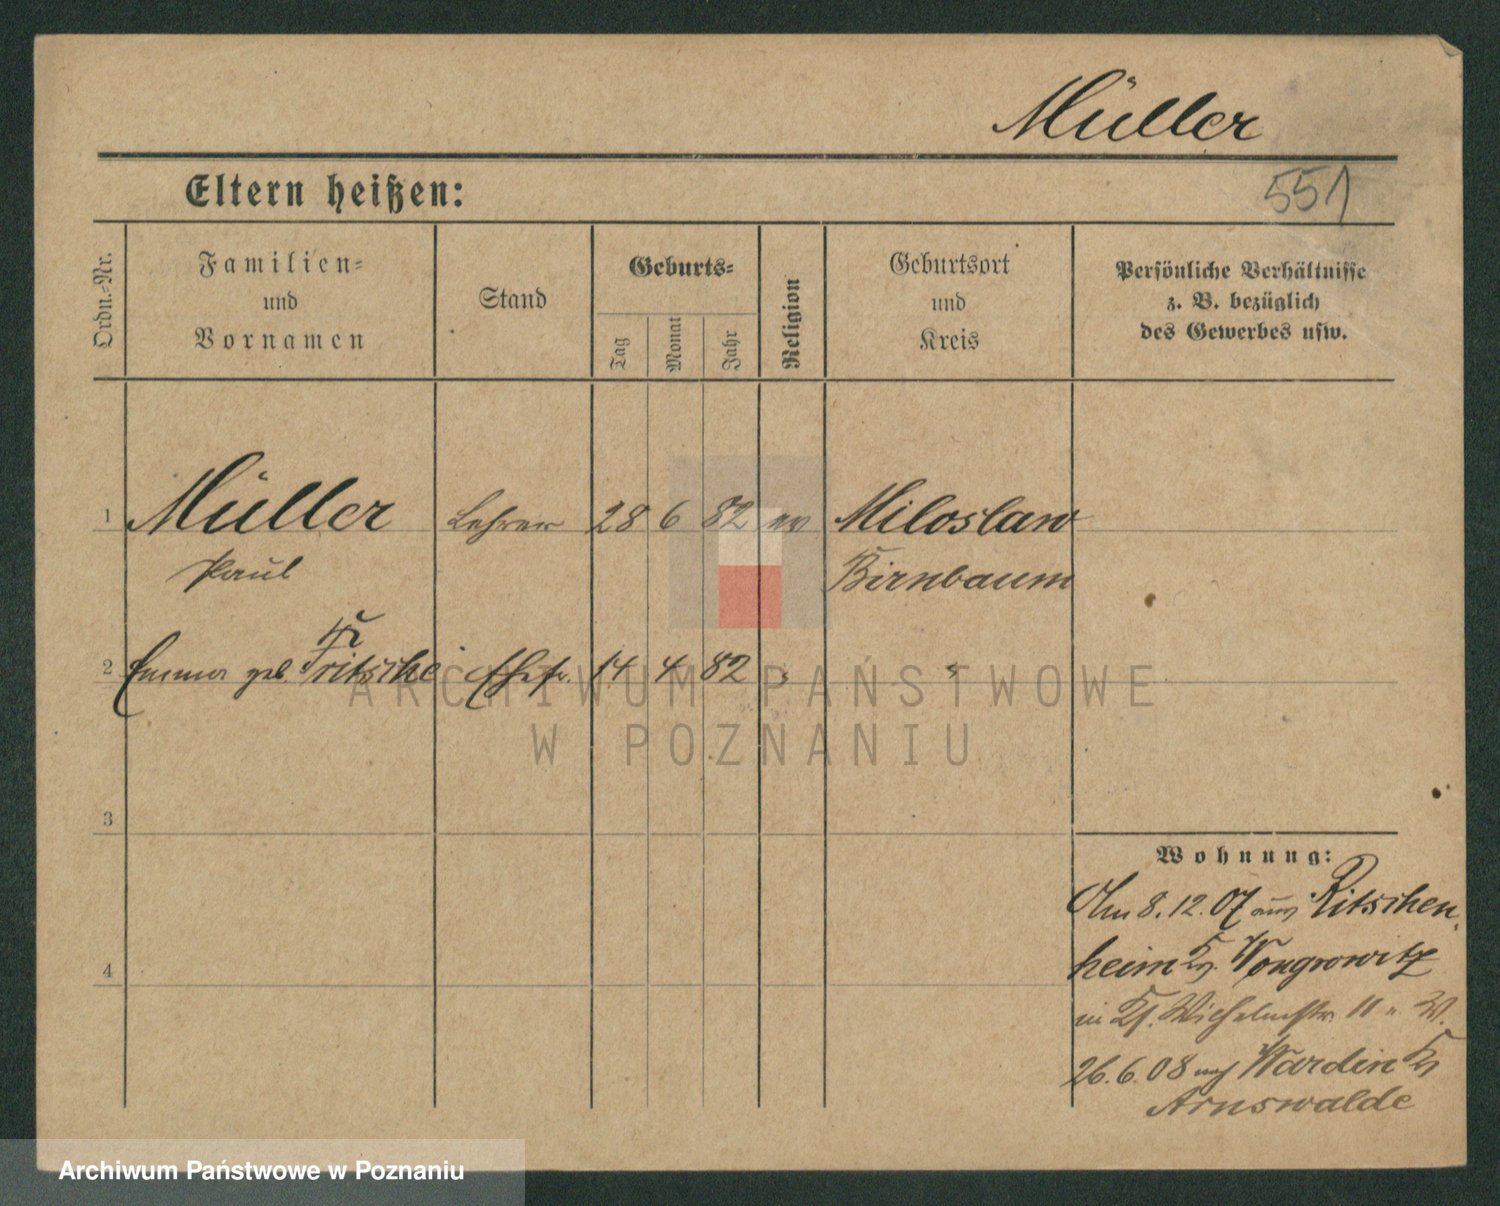 Müller
Eltern heißen:
551
Ordn.-Nr.
Familien-
und
Vornamen
Stand
Geburts-
Tag
Monat
Jahr
Religion
Geburtsort
und
Kreis
Persönliche Verhältnisse
z. B. bezüglich
des Gewerbes usw.
1 Müller Lehrer 28 6 82 ev Miloslaw
Paul Birnbaum
2 Emma geb. Fritsche Ehefr. 14 4 82 " "
ARCHIWUM PAŃSTWOWE
W POZNANIU
3
Wohnung:
Am 8.12.07 aus Ritschen
heim Kr. Wongrowitz
4
in Wilhelmstr. 11
26.6.08 nach Wardin Kr
Arnswalde
Archiwum Państwowe w Poznaniu